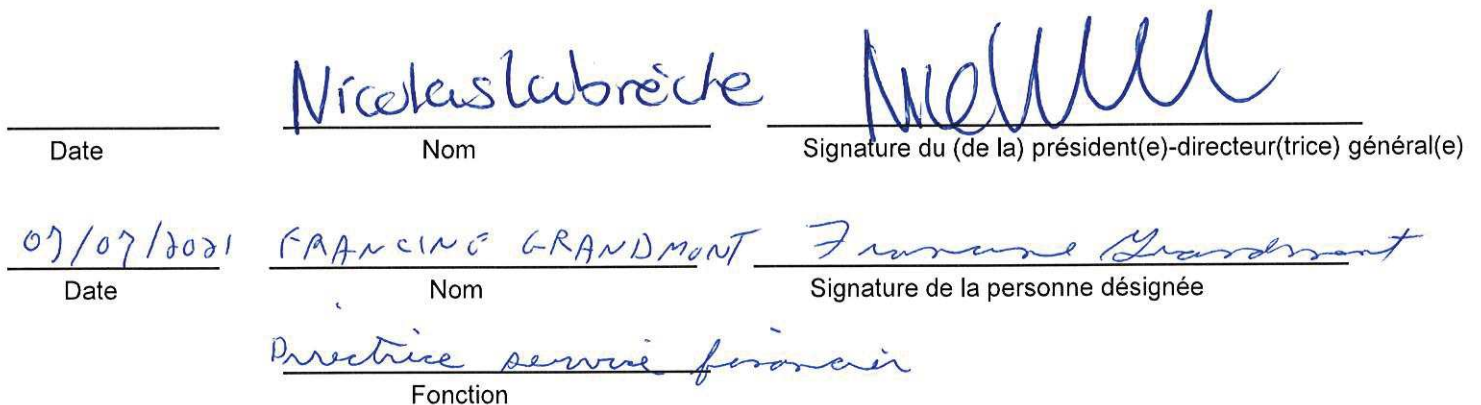 Nicolas Labrèche
Date Nom Signature du (de la) président(e)-directeur(trice) général(e)
07/07/2021 FRANCINE GRANDMONT Francine Grandmont
Date Nom Signature de la personne désignée
Directrice service financier
Fonction